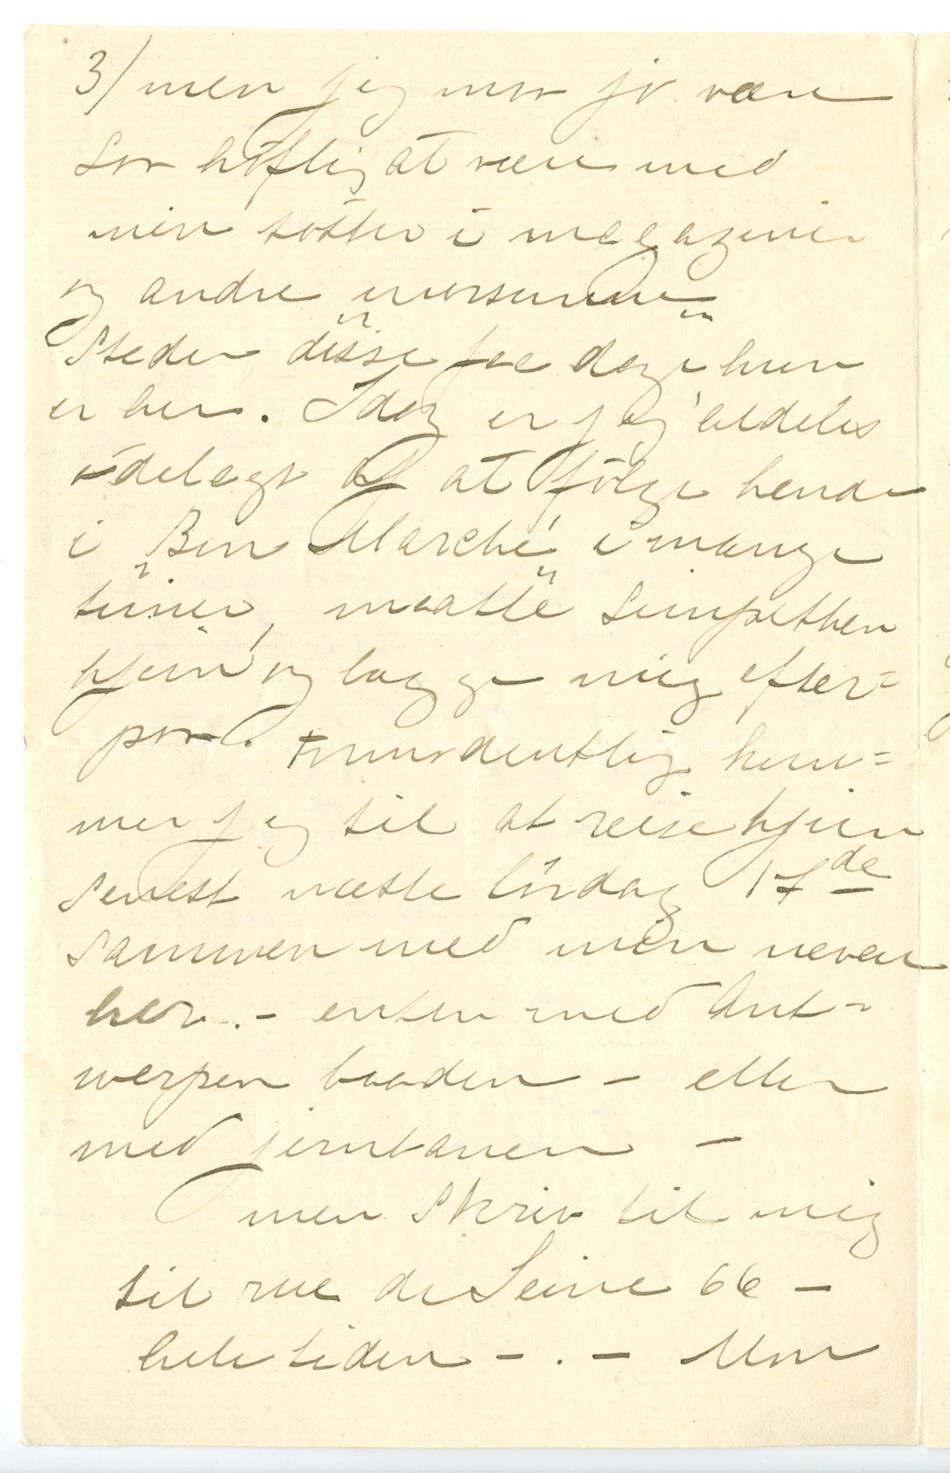 3/ men jeg maa jo være
saa höflig at være med
min söster i magaziner
og andre morsomme
steder disse faa dage hun
er her. Idag er jeg aldeles
ödelagt af at fölge hende
i "Bon Marché" i mange
timer, maatte simpelthen
hjem og lægge mig efter-
paa. Formodentlig kom-
mer jeg til at reise hjem
senest næste lördag 17de
sammen med min neveu
her. - enten med Ant-
werpen baaden - eller
med jernbanen -
men skriv til mig
til rue de Seine 66 -
hele tiden - . - Mon